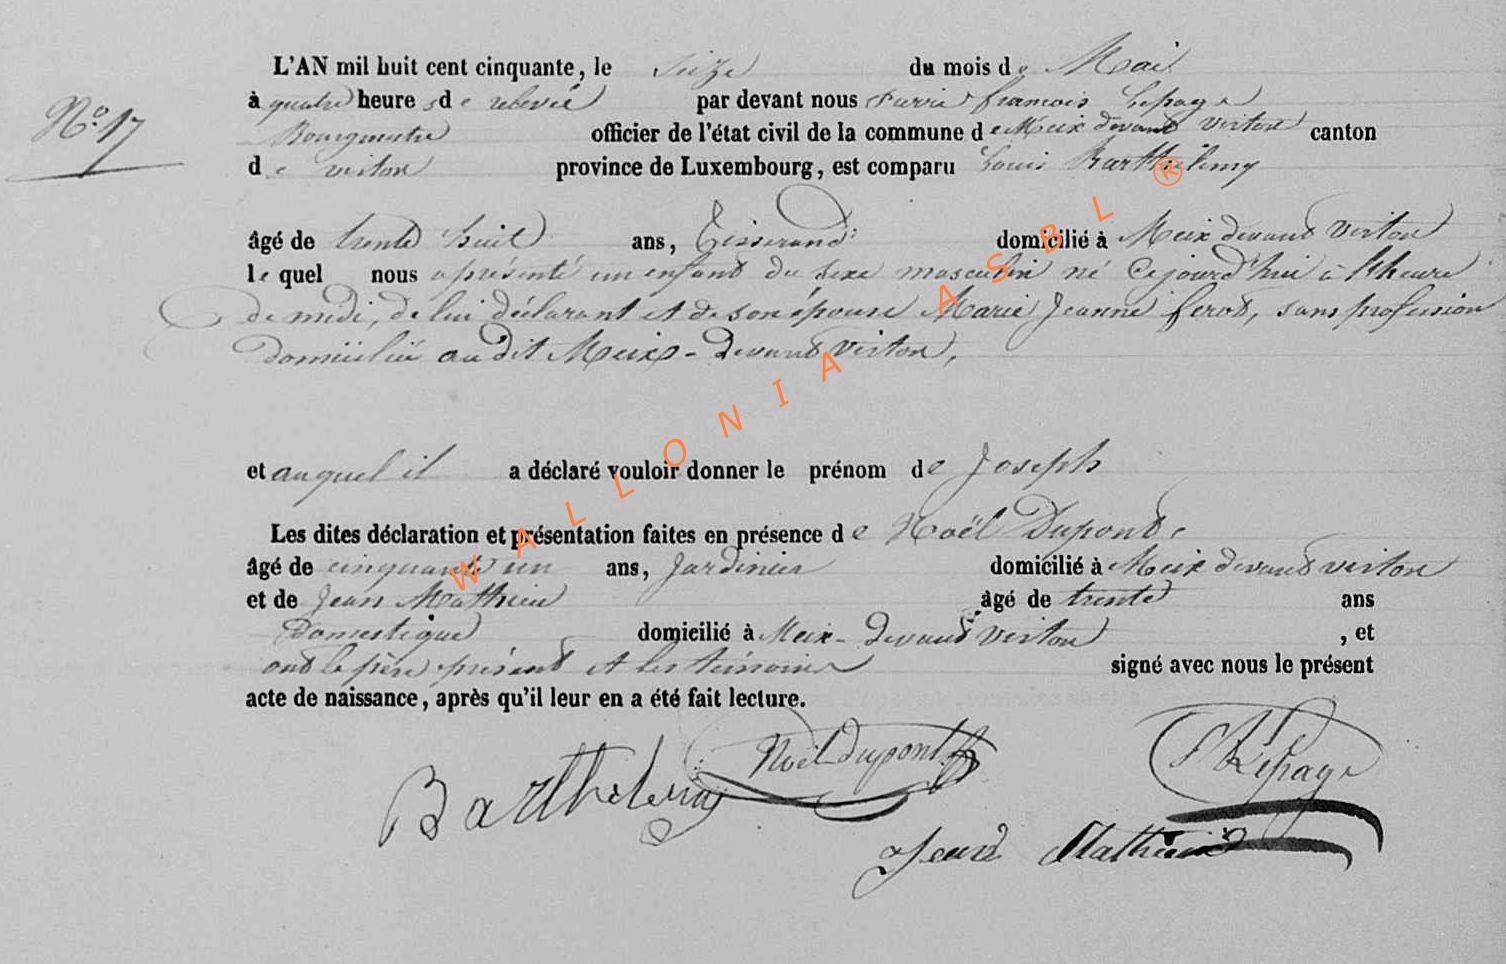 L'AN mil huit cent cinquante, le Seize du mois de Mai
à quatre heures de relevée par devant nous Pierre françois Lepage
N.o 17
Bourgmestre officier de l'état civil de la commune de Meix devant virton canton
de virton province de Luxembourg, est comparu Louis Barthélemy
âgé de trente huit ans, Tisserand domicilié à Meix devant Virton
le quel nous a présenté un enfant du sexe masculin né Cejourd'hui à l'heure
de midi, de lui déclarant et de son épouse Marie Jeanne ferot, sans profession
Domiciliée au dit Meix-Devant Virton,
et auquel il a déclaré vouloir donner le prénom de Joseph
Les dites déclaration et présentation faites en présence de Noël Dupont
âgé de cinquante un ans, Jardinier domicilié à Meix devant virton
et de Jean Mathieu âgé de trente ans
Domestique domicilié à Meix-Devant Virton , et
ont le père présent et les témoins signé avec nous le présent
acte de naissance, après qu'il leur en a été fait lecture.
Barthelemy Noël Dupont Lepage
Jean Mathieu
WALLONIA ASBL ®